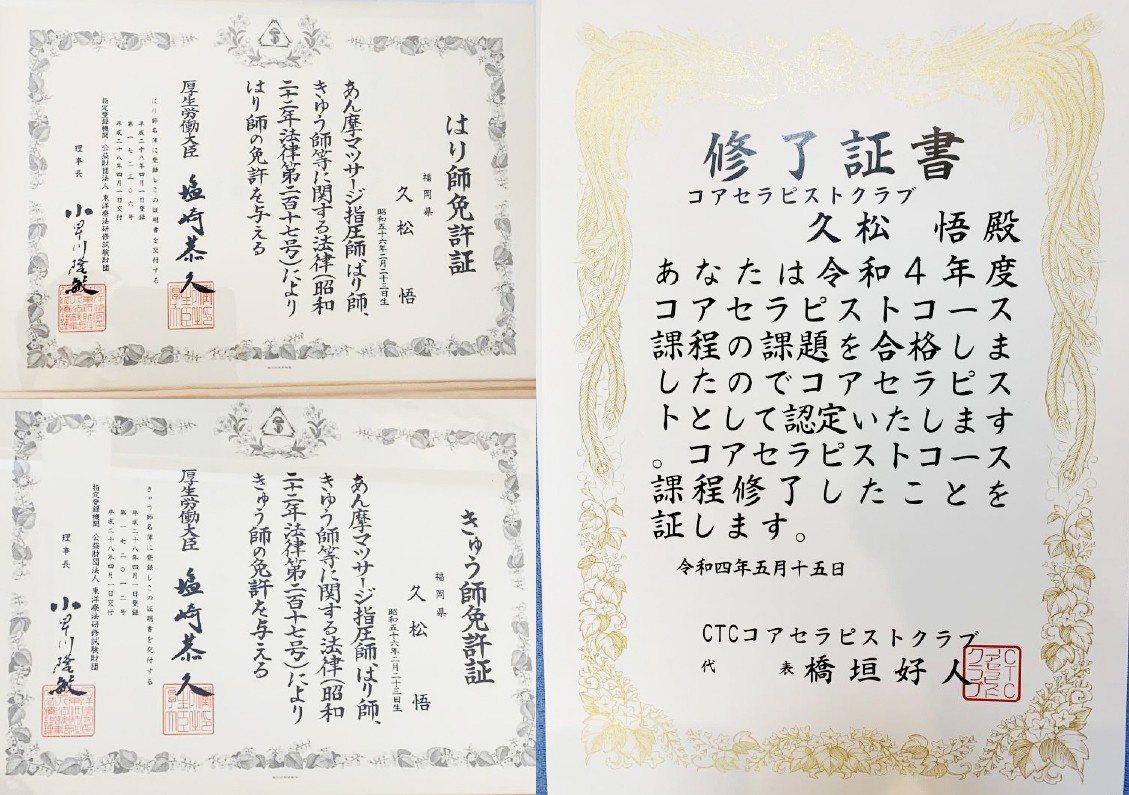 はり師免許証
福岡県
久松 悟
昭和五十六年二月二十三日生
あん摩マツサージ指圧師、はり師、
きゆう師等に関する法律(昭和
二十二年法律第二百十七号)により
はり師の免許を与える
厚生労働大臣 塩崎恭久
はり師名簿に登録しこの証明書を交付する
平成二十八年四月一日登録
第一七二三〇六号
平成二十八年四月一日交付
指定登録機関 公益財団法人 東洋療法研修試験財団
理事長 小早川隆敏
きゅう師免許証
福岡県
久松 悟
昭和五十六年二月二十三日生
あん摩マツサージ指圧師、はり師、
きゆう師等に関する法律(昭和
二十二年法律第二百十七号)により
きゅう師の免許を与える
厚生労働大臣 塩崎恭久
きゅう師名簿に登録しこの証明書を交付する
平成二十八年四月一日登録
第一七二〇一二号
平成二十八年四月一日交付
指定登録機関 公益財団法人 東洋療法研修試験財団
理事長 小早川隆敏
修了証書
コアセラピストクラブ
久松 悟殿
あなたは令和4年度
コアセラピストコース
課程の課題を合格しま
したのでコアセラピス
トとして認定いたします
。コアセラピストコース
課程修了したことを
証します。
令和四年五月十五日
CTCコアセラピストクラブ
代 表 橋垣好人
CTC
コアセラピスト
クラブ